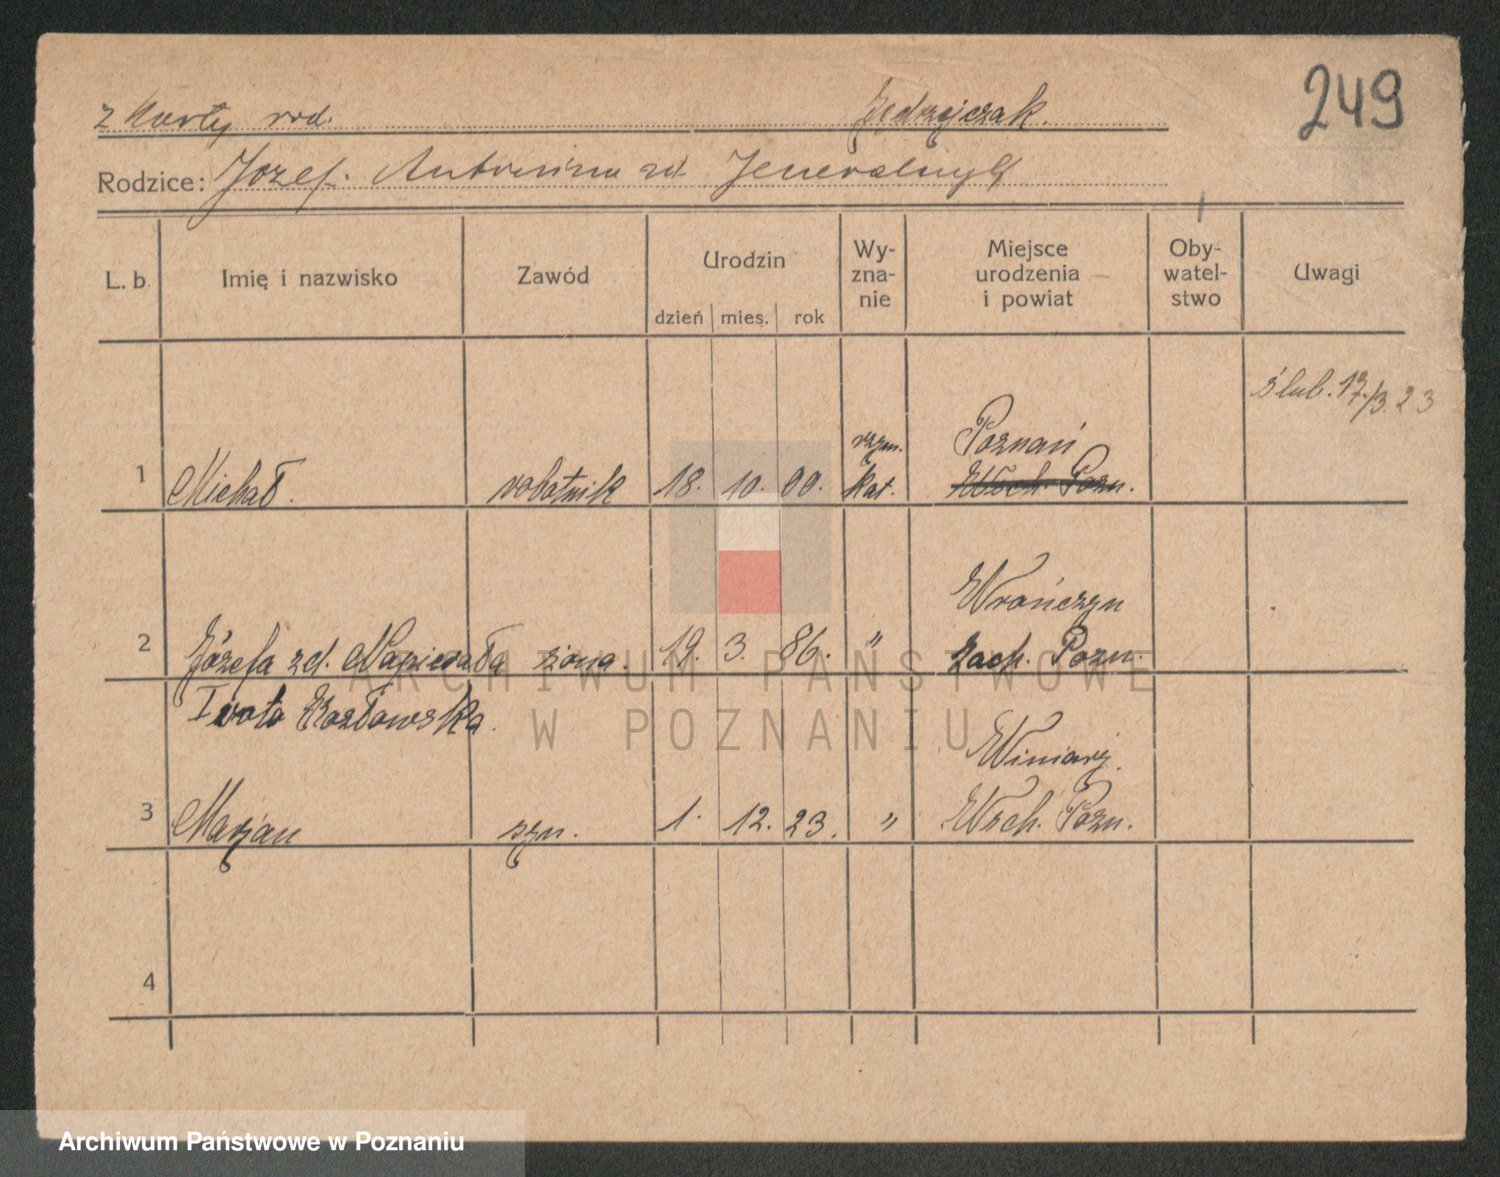 249
z karty rod. Jędrzejczak.
Rodzice: Józef. Antonina zd. Jeneralczyk
L. b. Imię i nazwisko Zawód Urodzin dzień mies. rok Wy-zna-nie Miejsce urodzenia i powiat Oby-watel-stwo Uwagi
ślub. 17./3. 23
rzym. Poznań
1 Michał. robotnik 18. 10. 00. kat. Wsch. Pozn.
Wrończyn
2 Józefa zd. Napierała żona. 19. 3. 86. " Zach. Pozn.
I voto Kozłowska.
Winiary.
3 Marjan syn. 1. 12. 23. " Wsch. Pozn.
4
ARCHIWUM PAŃSTWOWE
W POZNANIU
Archiwum Państwowe w Poznaniu